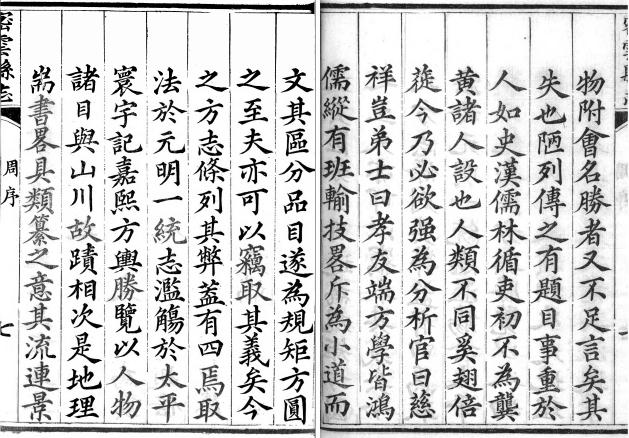 文其區分品目遂為規矩方圓
之至夫亦可以竊取其義矣今
之方志條列其弊蓋有四焉取
法於元明一統志濫觴於太平
寰宇記嘉熙方輿勝覽以人物
諸目與山川故蹟相次是地理
耑書畧具類纂之意其流連景
密雲縣志
周序
七
物附會名勝者又不足言矣其
失也陋列傳之有題目事重於
人如史漢儒林循吏初不為龔
黃諸人設也人類不同奚翅倍
蓰今乃必欲强為分析官曰慈
祥豈弟士曰孝友端方學皆鴻
儒縱有班輸技畧斥為小道而